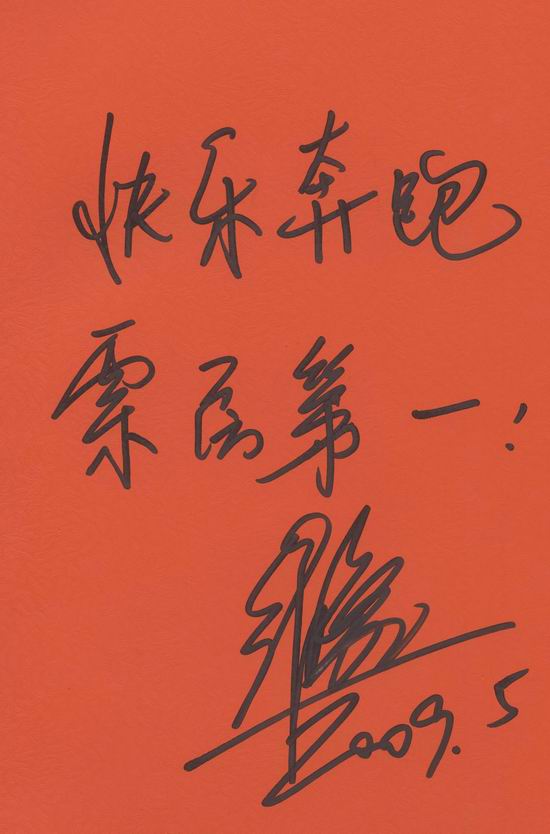 快乐奔跑
票房第一!
2009.5